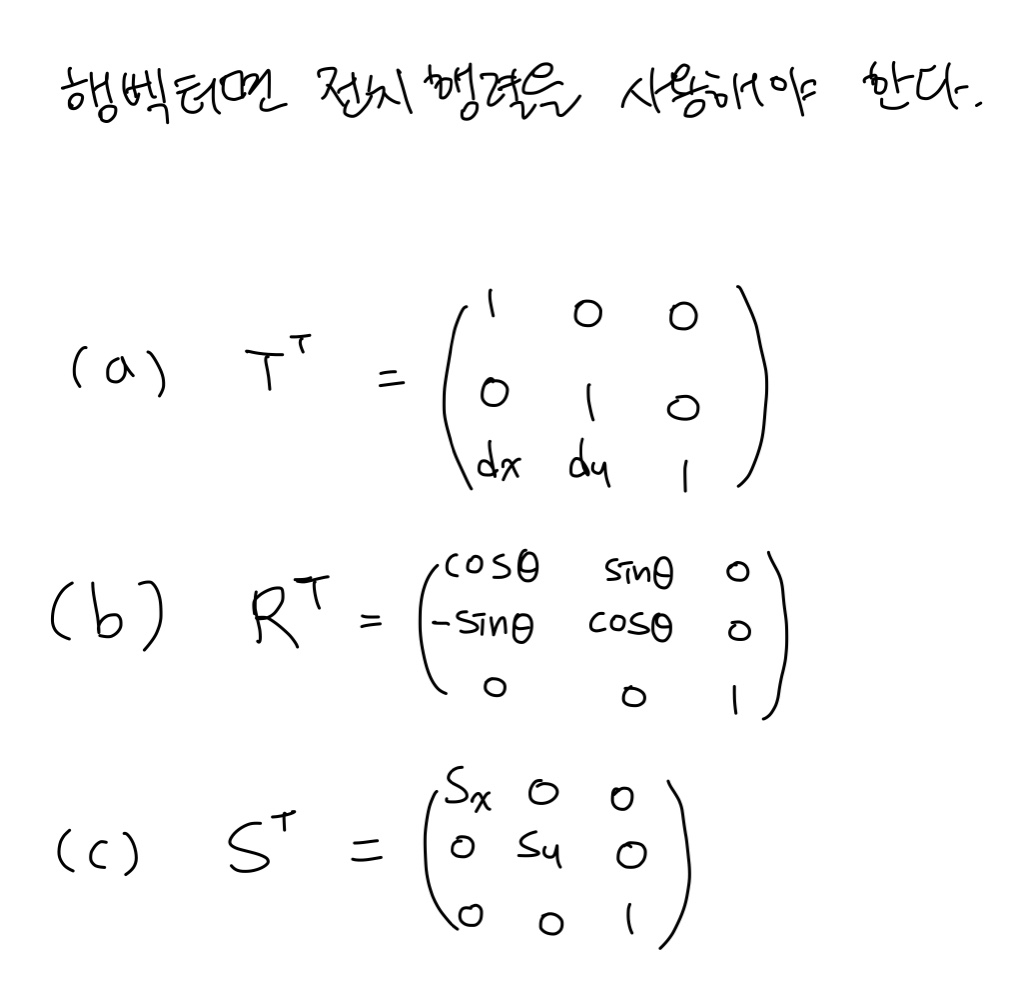 행벡터면 전치행렬을 사용해야 한다.
(a) T^T = ( 1 0 0
0 1 0
dx dy 1 )
(b) R^T = ( cosθ sinθ 0
-sinθ cosθ 0
0 0 1 )
(c) S^T = ( Sx 0 0
0 Sy 0
0 0 1 )